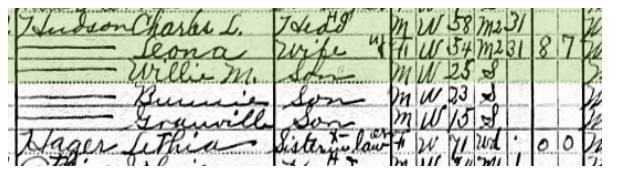 Hudson Charles L. Head M W 58 M2 31
Leona Wife F W 54 M2 31 8 7
Willie M. Son M W 25 S
Bunnie Son M W 23 S
Granville Son M W 15 S
Hager Lethia Sister in law F W 71 Wd 0 0